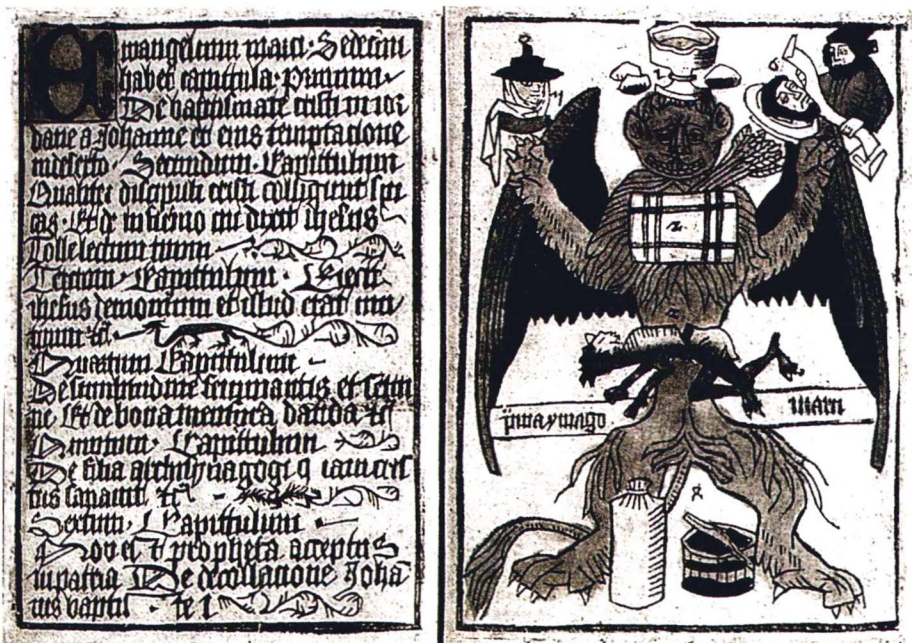 Ewangelium marci · Sedecim
habet capitula · primum
De baptismate cristi in ior
dane a Johanne et eius temptacione
in deserto · Secundum Capittulum
Qualiter discipuli cristi colligunt spi
cas · Et de infirmo cui dixit ihesus
Tolle lectum tuum
Tercium · Capittulum · Eiecit
ihesus demonium et illud erat mu
tum
Quartum Capittulum
De similitudine seminantis et semi
ne Et de bona mensura danda
Quintum · Capittulum
De filia archisynagogi cris
tus sanauit
Sextum · Capittulum
propheta acceptus
in patria De decollacione Joha
nis
ymago marci